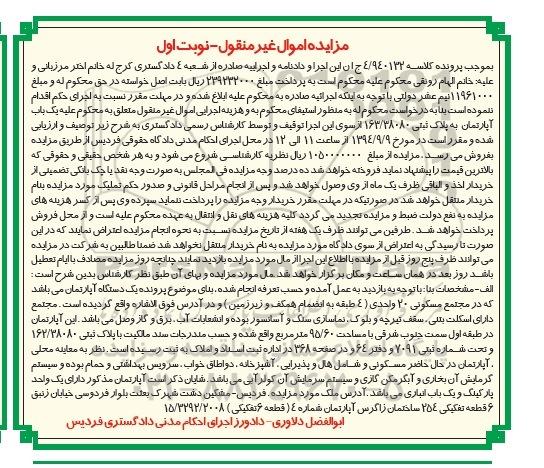 مزایده اموال غیر منقول-نوبت اول
بموجب پرونده کلاسه ٤/٩٤٠١٣٢ ج ا ن این اجرا و دادنامه و اجراییه صادره از شعبه ٤ دادگستری کرج له خانم اختر مرزبانی و
علیه: خانم الهام رونقی محکوم علیه محکوم است به پرداخت مبلغ ٢٣٩٢٣٢٠٠٠ ریال بابت اصل خواسته در حق محکوم له و مبلغ
١١٩٦١٠٠٠ نیم عشر دولتی با توجه به اینکه اجرائیه صادره به محکوم علیه ابلاغ شده و در مهلت مقرر نسبت به اجرای حکم اقدام
ننموده است بنا به درخواست محکوم له به منظور استیفای محکوم به و هزینه اجرایی اموال غیر منقول متعلق به محکوم علیه یک باب
آپارتمان به پلاک ثبتی ١٦٣/٣٨٠٨٠ از سوی این اجرا توقیف و توسط کارشناس رسمی دادگستری به شرح زیر توصیف و ارزیابی
شده و مقرر است در مورخ ١٣٩٤/٩/٩ از ساعت ١١ الی ١٢ در محل اجرای احکام مدنی دادگاه حقوقی فردیس از طریق مزایده
بفروش می رسد. مزایده از مبلغ ١٠٥٠٠٠٠٠٠٠ ریال نظریه کارشناسی شروع می شود و به هر شخص حقیقی و حقوقی که
بالاترین قیمت را پیشنهاد نماید فروخته خواهد شد ده درصد وجه مزایده فی المجلس به صورت وجه نقد یا چک بانکی تضمینی از
خریدار اخذ و الباقی ظرف یک ماه از وی وصول خواهد شد و پس از انجام مراحل قانونی و صدور حکم تملیک مورد مزایده بنام
خریدار منتقل خواهد شد در صورتیکه در مهلت مقرر خریدار وجه مزایده را پرداخت ننماید سپرده وی پس از کسر هزینه های
مزایده به نفع دولت ضبط و مزایده تجدید می گردد کلیه هزینه های نقل و انتقال به عهده محکوم علیه است و از محل فروش
پرداخت خواهد شد. طرفین می توانند ظرف یک هفته از تاریخ مزایده نسبت به نحوه انجام مزایده اعتراض نمایند که در این
صورت تا رسیدگی به اعتراض از سوی دادگاه مورد مزایده به نام خریدار منتقل نخواهد شد ضمنا طالبین به شرکت در مزایده
می توانند ظرف پنج روز قبل از مزایده با اطلاع این اجرا از مال مورد مزایده بازدید نمایند چنانچه روز مزایده مصادف با ایام تعطیل
باشد روز بعد در همان ساعت و مکان برگزار خواهد شد. مال مورد مزایده و بهای آن طبق نظر کارشناس بدین شرح است:
الف-مشخصات بنا: با توجه به بازدید به عمل آمده و حسب تعرفه انجام شده، بنای موضوع پرونده یک دستگاه آپارتمان می باشد
که در مجتمع مسکونی ٢٠ واحدی (٤ طبقه به انضمام همکف و زیرزمین) و در آدرس فوق الاشاره واقع گردیده است. مجتمع
دارای اسکلت بتنی، سقف تیرچه و بلوک، نماسازی سنگ و آسانسور بوده و انشعابات آب، برق و گاز وصل می باشد. این آپارتمان
در طبقه اول سمت جنوب شرقی با مساحت ٩٥/٦٠ متر مربع واقع شده و حسب مندرجات سند مالکیت با پلاک ثبتی ١٦٢/٣٨٠٨٠
و تحت شماره ثبتی ٧٠٩١ و دفتر ٦٤ و در صفحه ٣٦٨ در اداره ثبت اسناد و املاک به ثبت رسیده است. نظر به معاینه محلی
، آپارتمان در حال حاضر مسکونی و شامل هال و پذیرایی، آشپزخانه، دواطاق خواب، سرویس بهداشتی و حمام بوده و سیستم
گرمایش آن بخاری و آبگرمکن گازی و سیستم سرمایش آن کولر آبی می باشد. شایان ذکر است آپارتمان مذکور دارای یک واحد
پارکینگ و یک باب انباری می باشد. آدرس ملک مورد مزایده. فردیس-مشکین دشت شهرک بعثت بلوار فردوسی خیابان زنبق
٦ قطعه تفکیکی ٢٥٤ ساختمان زاگرس آپارتمان شماره ٤ (قطعه ٦ تفکیکی) ١٥/٣٢٩٢/٢٠٠٨
ابوالفضل دلاوری-دادورز اجرای احکام مدنی دادگستری فردیس